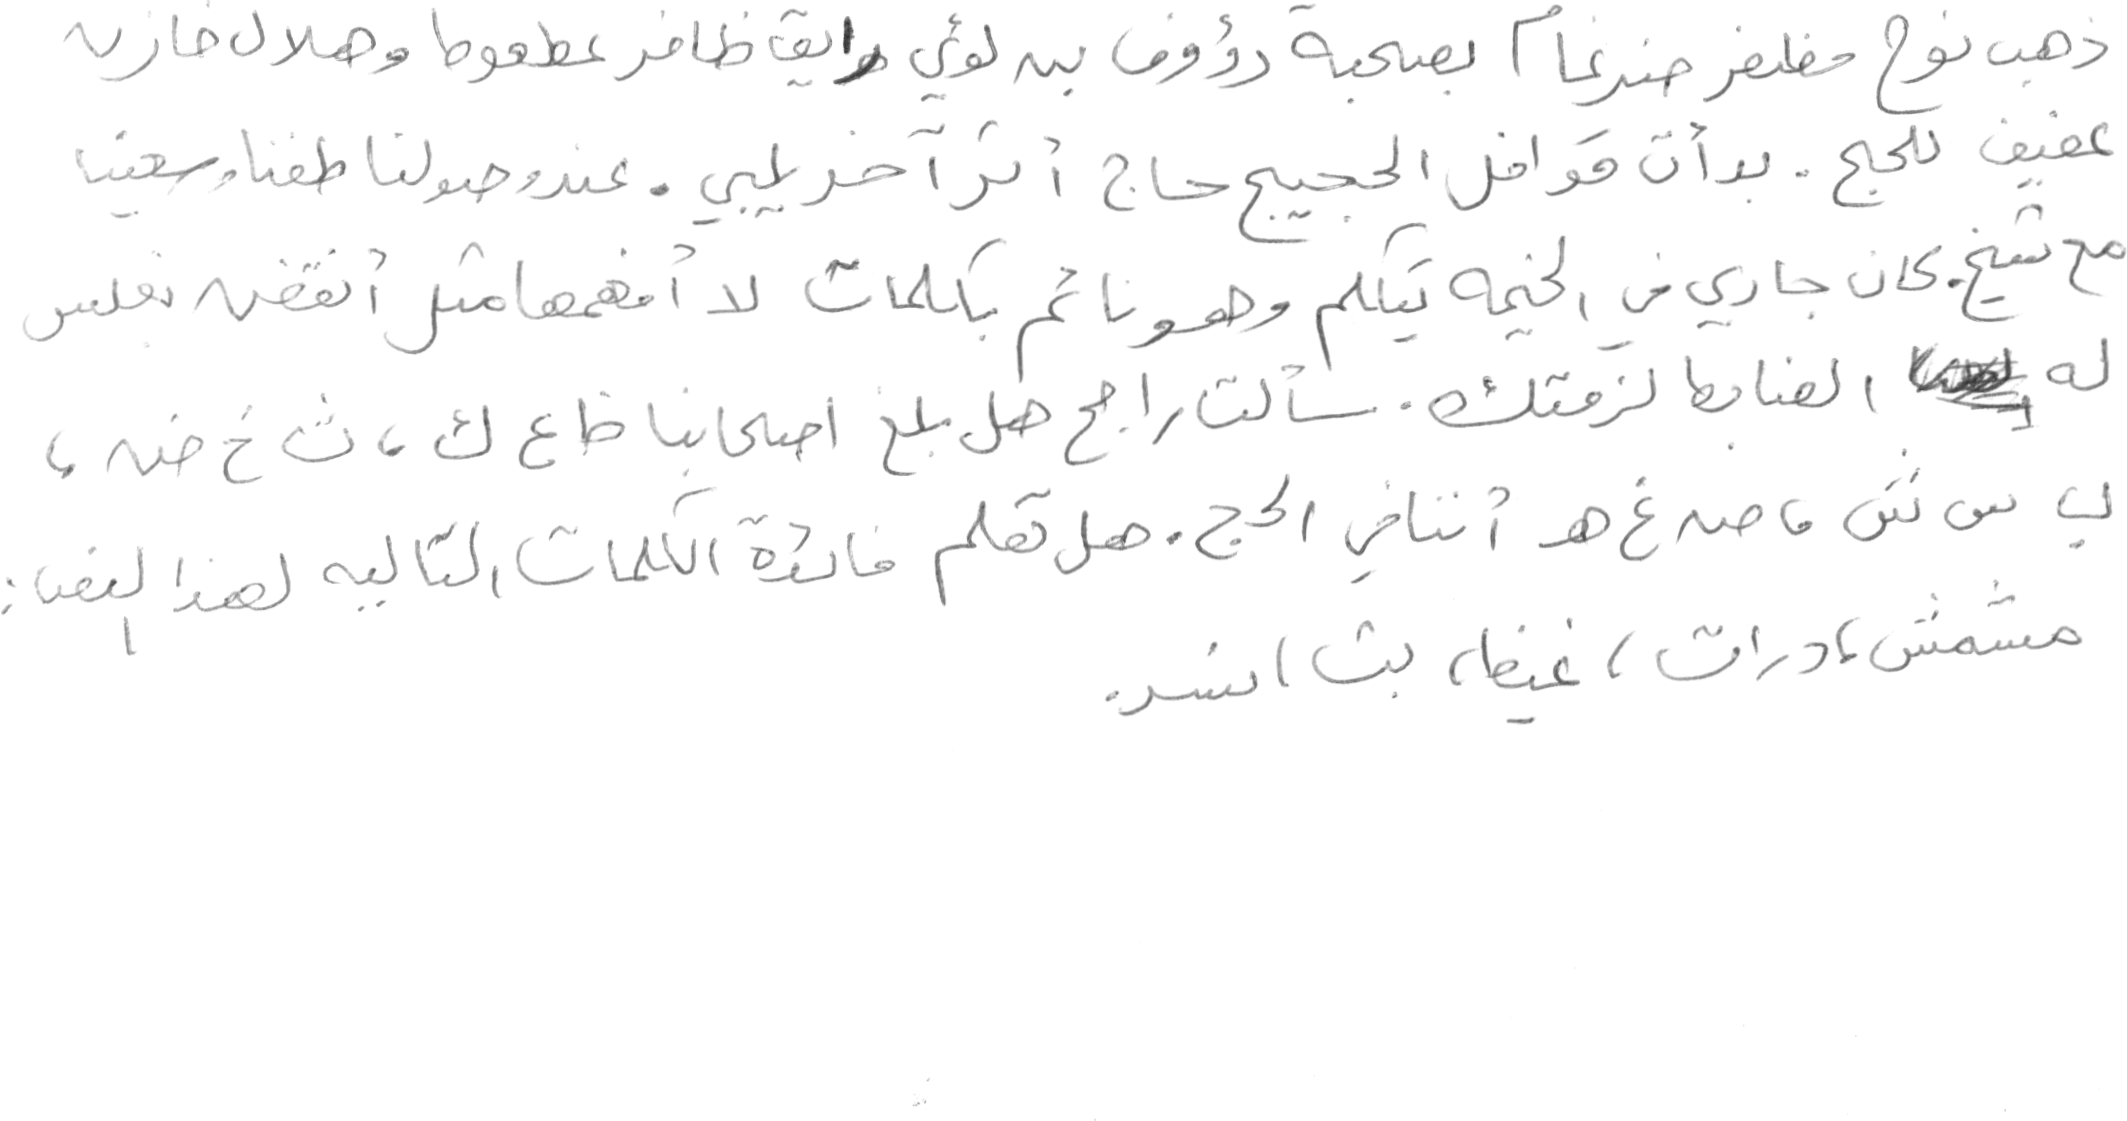 ذهب نوح مظفر ضرغام بصحبة رؤوف بن لؤي رايق ظافر عطعوط وهلال خازن
عفيف للحج. بدأت قوافل الحجيج حاج أثر آخر يلبي. عند وصولنا طفنا وسعينا
مع شيخ. كان جاري في الخيمه يتكلم وهو نائم بكلمات لا أفهمها مثل أنقض بغلس
له الضابط لزقتك. سألت راجح هل بلغ اصحابنا ظ ع ك، ث خ ض،
لب س ش، ص غ هـ أننا في الحج. هل تعلم فائدة الكلمات التاليه لهذا البحث:
مشمش، درات، غيظ، بث، نسر.